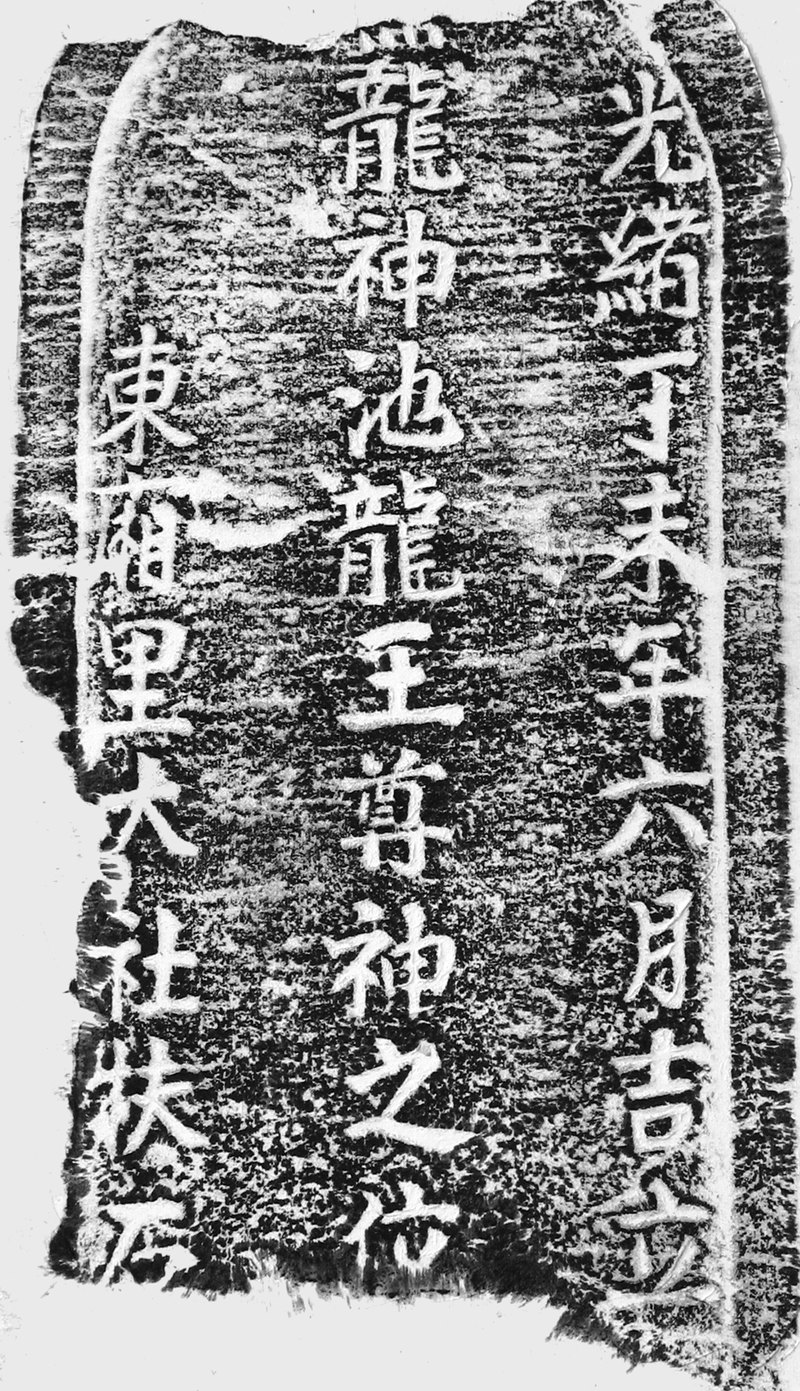 光緒丁未年六月吉立
龍神池龍王尊神之位
東廂里大社扶石